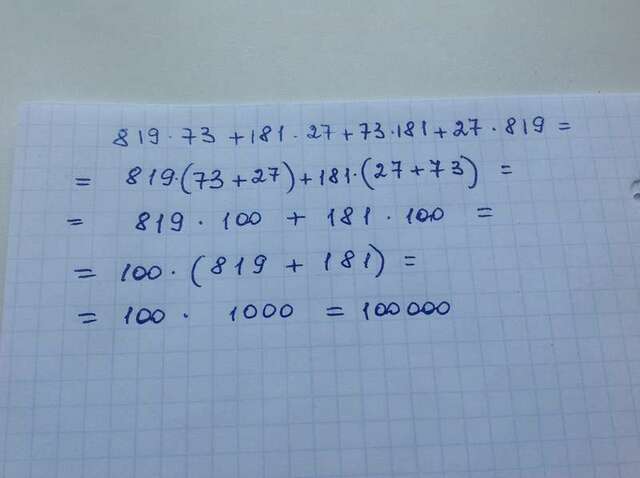 819·73 + 181·27 + 73·181 + 27·819 =
= 819·(73 + 27) + 181·(27 + 73) =
= 819 · 100 + 181 · 100 =
= 100 · (819 + 181) =
= 100 · 1000 = 100000